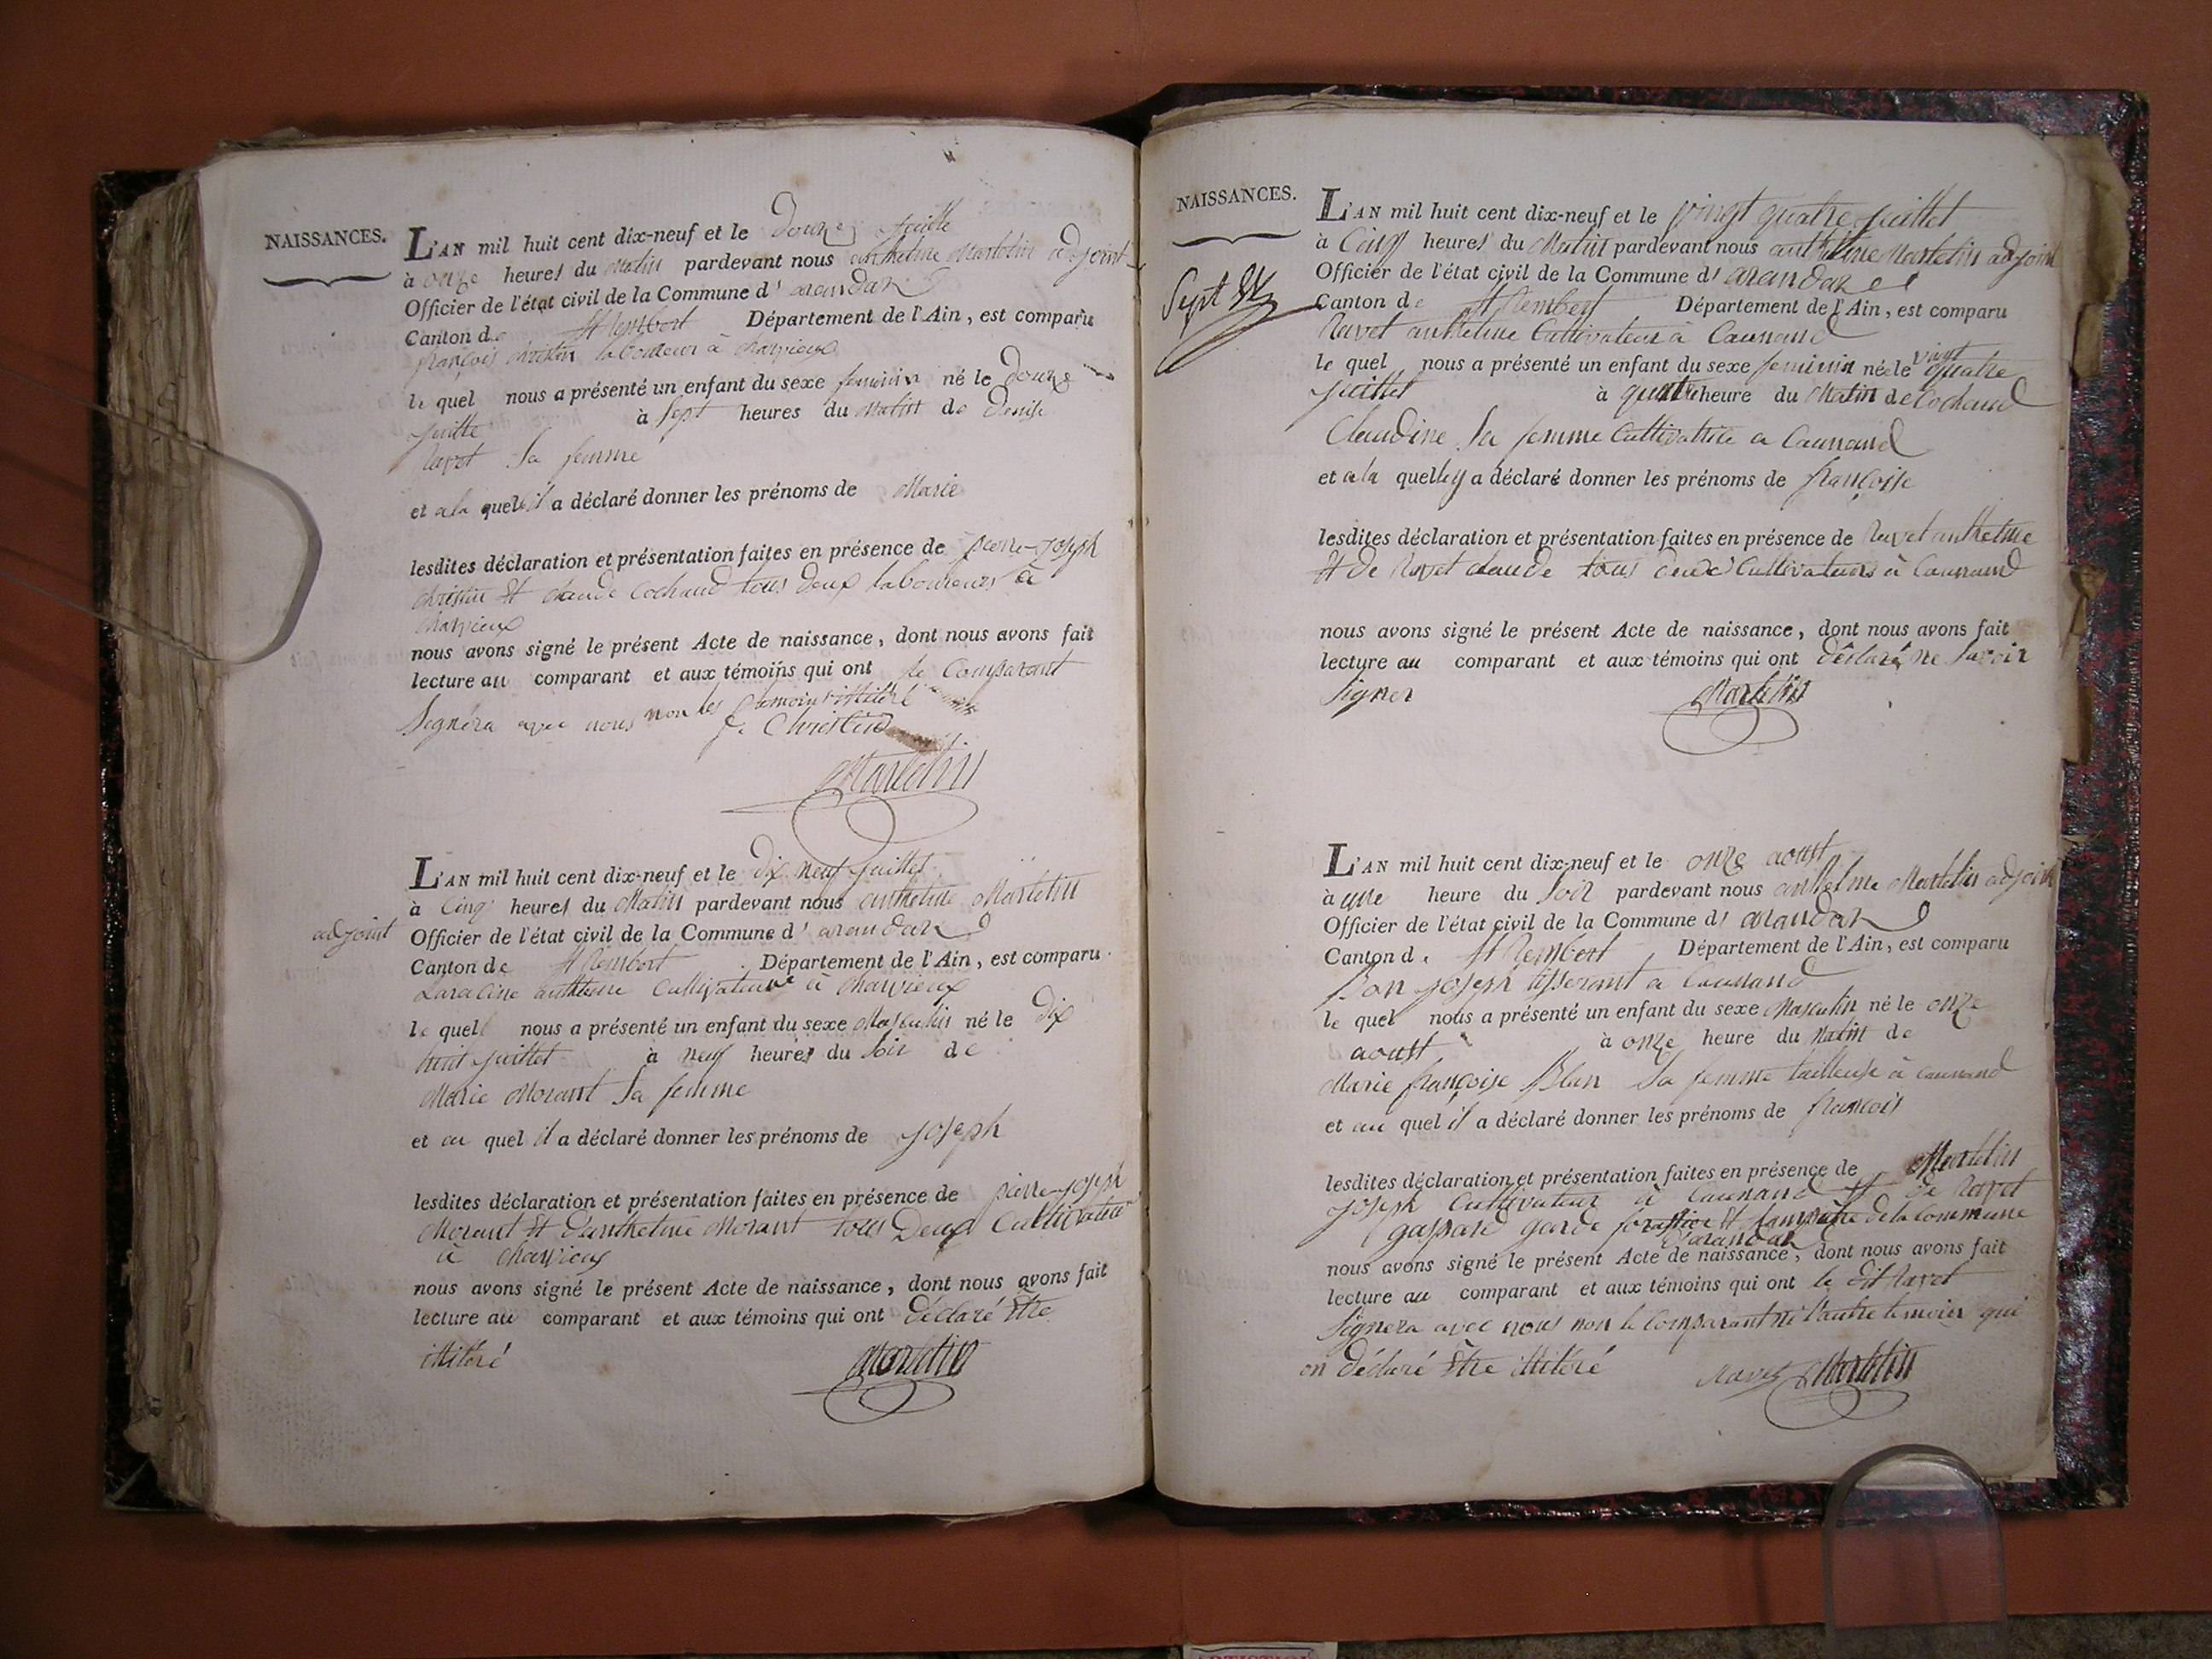 NAISSANCES.
L'AN mil huit cent dix-neuf et le Douze juille
à onze heures du Matin pardevant nous anthelme Martelin adjoint
Officier de l'état civil de la Commune d' arandaz
Canton de St Rembert Département de l'Ain, est comparu
françois christin laboureur à charvieux
le quel nous a présenté un enfant du sexe feminin né le Douze
juille à sept heures du matin de Denise
Ravet Sa femme
et a la quele il a déclaré donner les prénoms de Marie
lesdites déclaration et présentation faites en présence de pierre-joseph
christin et claude Cochaud tous deux laboureurs à
charvieux
nous avons signé le présent Acte de naissance, dont nous avons fait
lecture au comparant et aux témoins qui ont le Comparant
Signéra avec nous non les temoins illitéré
f. Christin
Martelin
L'AN mil huit cent dix-neuf et le Dix neuf juillet
à Cinq heures du Matin pardevant nous anthelme Martelin
adjoint Officier de l'état civil de la Commune d' arandaz
Canton de St Rembert Département de l'Ain, est comparu
Laracine anthelme Cultivateur à charvieux
le quel nous a présenté un enfant du sexe Masculin né le Dix
huit juillet à neuf heures du Soir de
Marie Morant Sa femme
et au quel il a déclaré donner les prénoms de joseph
lesdites déclaration et présentation faites en présence de pierre-joseph
Morant et d'anthelme Morant tous Deux Cultivateur
à charvieux
nous avons signé le présent Acte de naissance, dont nous avons fait
lecture au comparant et aux témoins qui ont déclaré être
illitéré Martelin
NAISSANCES.
L'AN mil huit cent dix-neuf et le vingt quatre juillet
à Cinq heures du Matin pardevant nous anthelme Martelin adjoint
Officier de l'état civil de la Commune d' arandaz
Sept
Canton de St Rembert Département de l'Ain, est comparu
Ravet anthelme Cultivateur à Caunand
le quel nous a présenté un enfant du sexe feminin né le vingt quatre
juillet à quatre heure du Matin de Cochaud
Claudine Sa femme Cultivatrice a Caunand
et a la quelle y a déclaré donner les prénoms de françoise
lesdites déclaration et présentation faites en présence de Ravet anthelme
et de Ravet claude tous deux Cultivateurs à Caunand
nous avons signé le présent Acte de naissance, dont nous avons fait
lecture au comparant et aux témoins qui ont déclaré ne Savoir
Signer Martelin
L'AN mil huit cent dix-neuf et le onze aoust
à une heure du Soir pardevant nous anthelme Martelin adjoint
Officier de l'état civil de la Commune d' arandaz
Canton de St Rembert Département de l'Ain, est comparu
joseph tisserant a Caunand
le quel nous a présenté un enfant du sexe Masculin né le onze
aoust à onze heure du matin de
Marie françoise Sa femme tailleuse à caunand
et au quel il a déclaré donner les prénoms de françois
lesdites déclaration et présentation faites en présence de Martelin
joseph Cultivateur à Caunand et de Ravet
gaspard garde forestier et champêtre de la Commune
d'arandaz
nous avons signé le présent Acte de naissance, dont nous avons fait
lecture au comparant et aux témoins qui ont le dit Ravet
Signera avec nous non le Comparant ni l'autre temoin qui
on déclaré être illitéré Ravet Martelin